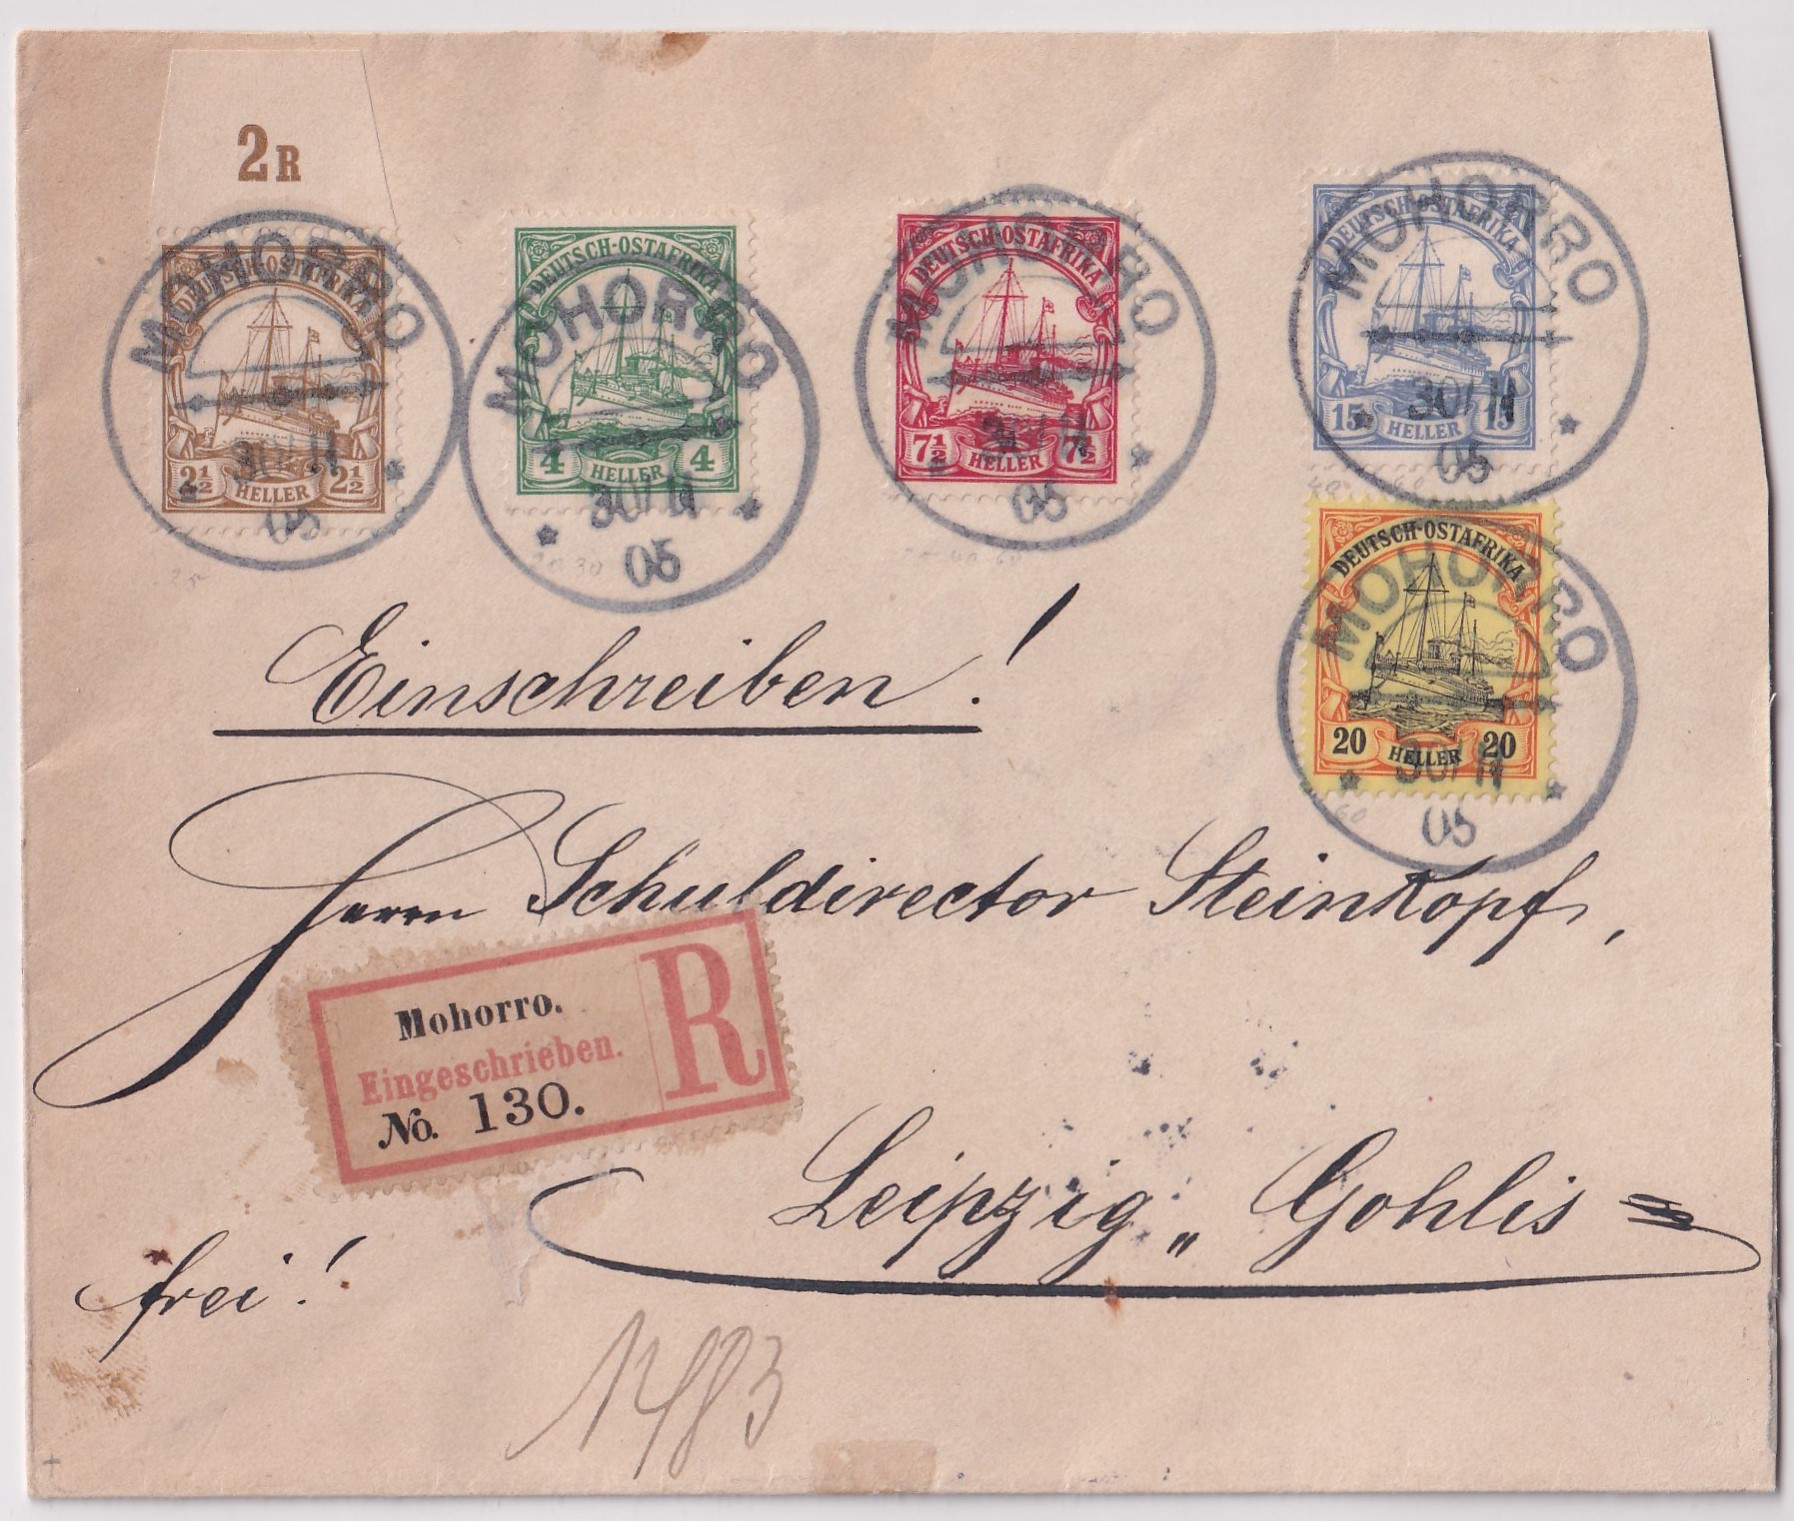 2R
DEUTSCH-OSTAFRIKA
2½ HELLER 2½
MOHORRO
30/11
05
DEUTSCH-OSTAFRIKA
4 HELLER 4
MOHORRO
30/11
05
DEUTSCH-OSTAFRIKA
7½ HELLER 7½
MOHORRO
30/11
05
DEUTSCH-OSTAFRIKA
15 HELLER 15
MOHORRO
30/11
05
DEUTSCH-OSTAFRIKA
20 HELLER 20
MOHORRO
30/11
05
Einschreiben!
Herrn Schuldirector Steinkopf,
Mohorro.
Eingeschrieben.
No. 130.
R
Leipzig „ Gohlis
frei!